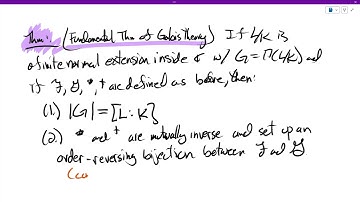 Thm: (Fundamental Thm of Galois Theory) If L/K is
a finite normal extension inside ℂ w/ G = Γ(L/K) and
if ℱ, 𝒢, *, † are defined as before, then:
(1.) |G| = [L:K]
(2.) * and † are mutually inverse and set up an
order-reversing bijection between ℱ and 𝒢